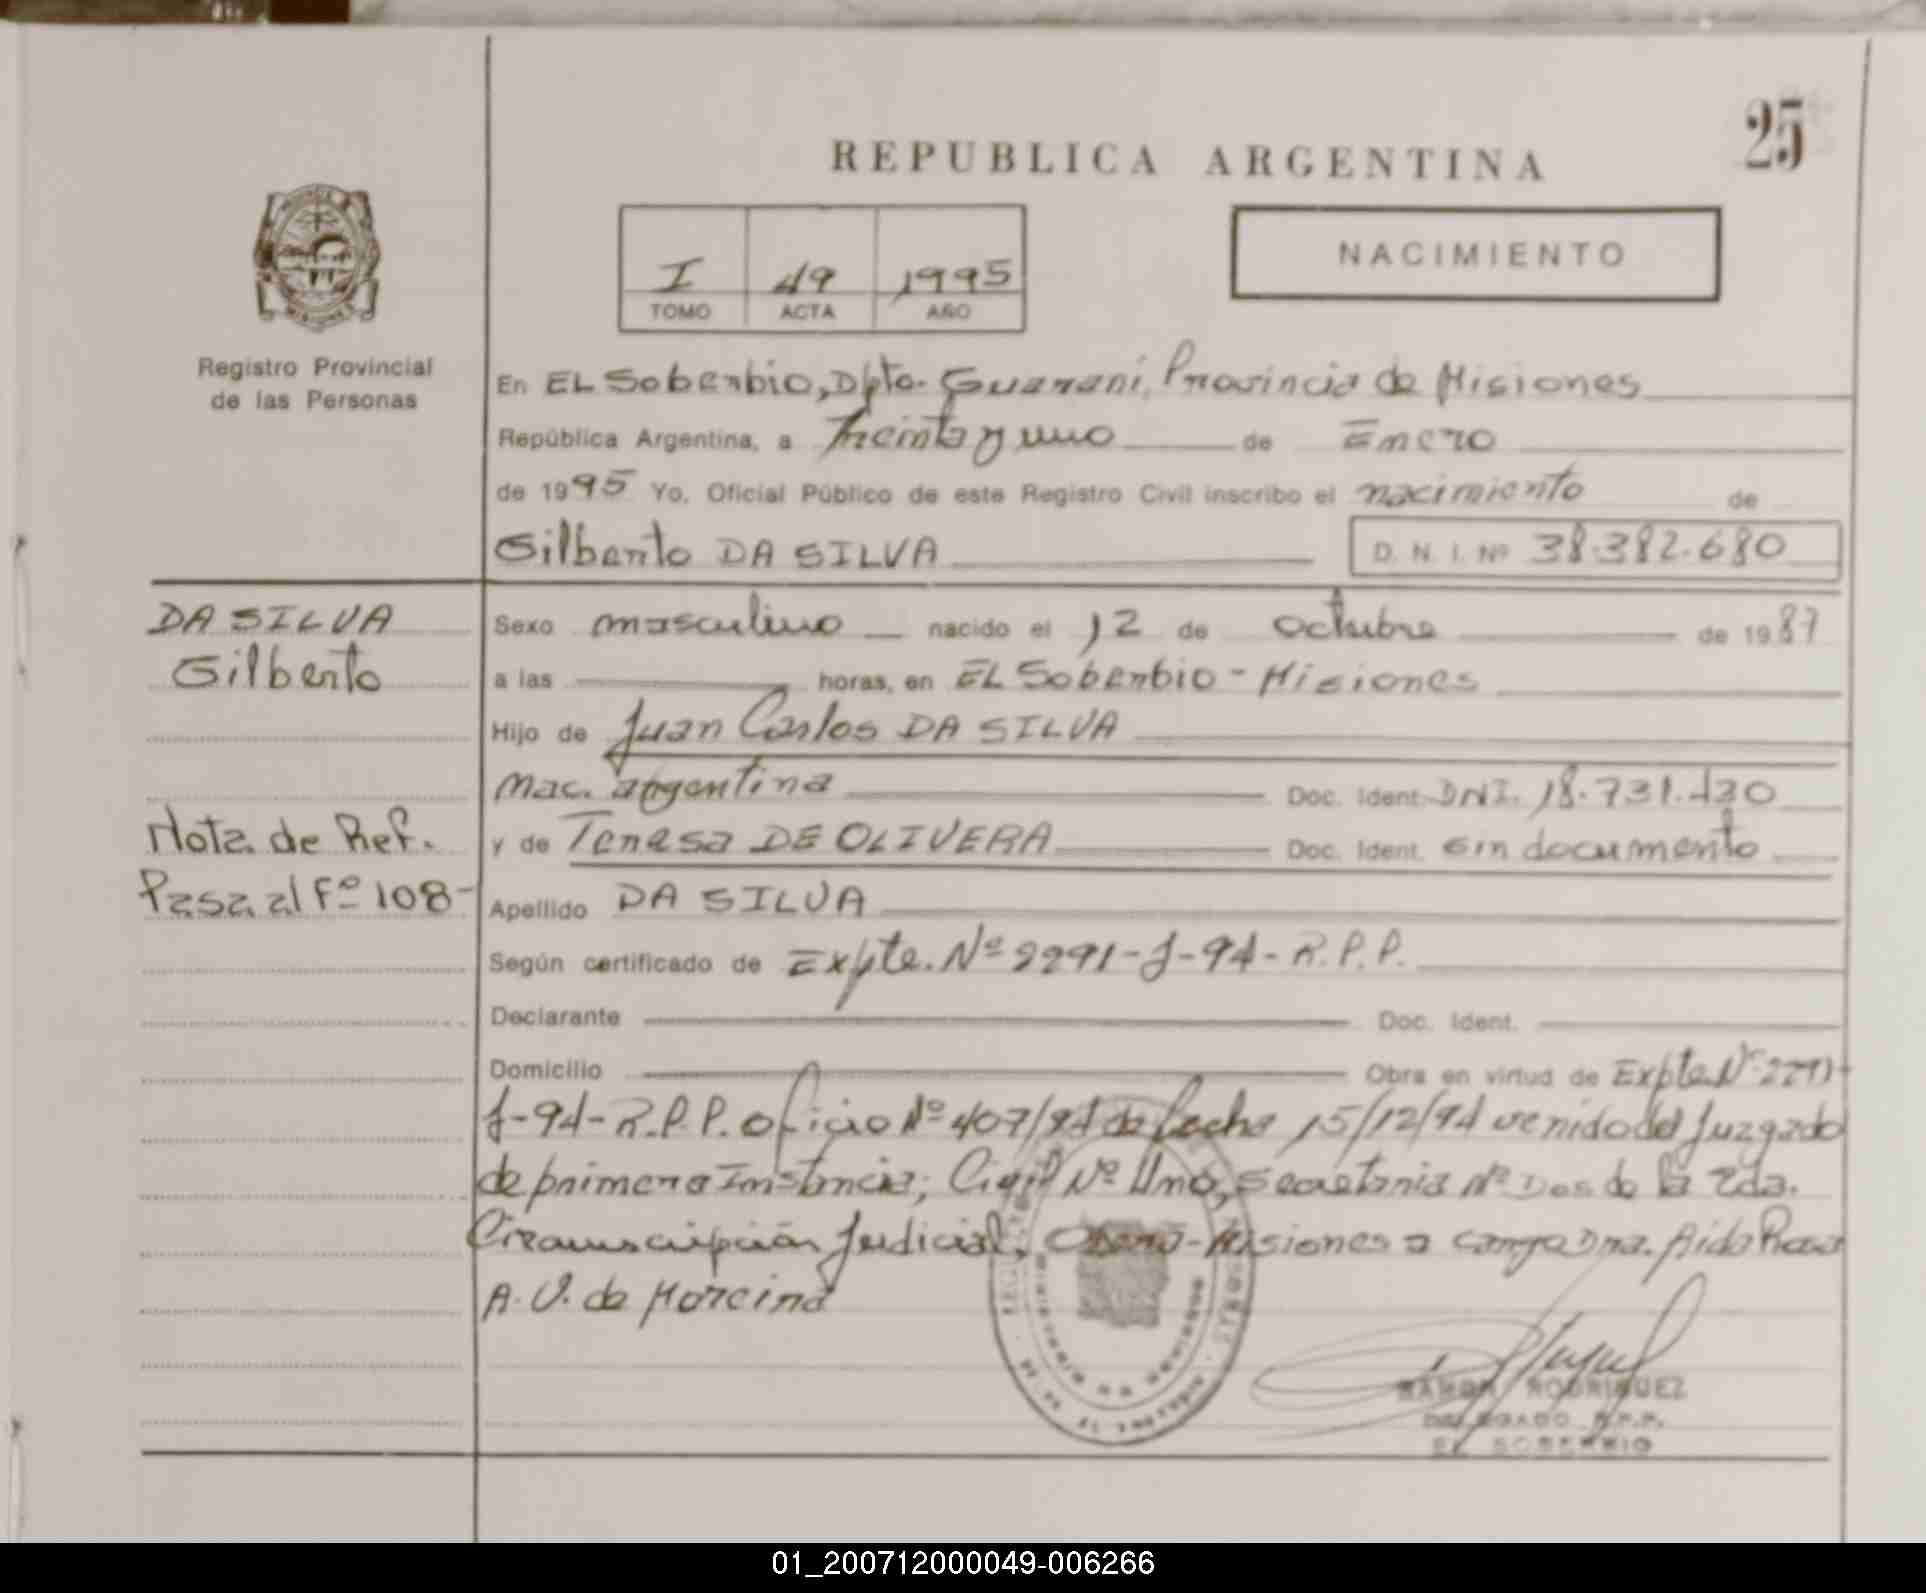 25
REPUBLICA ARGENTINA
NACIMIENTO
I 49 1995
TOMO ACTA AÑO
Registro Provincial
de las Personas
En EL Soberbio, Dpto. Guaraní, Provincia de Misiones
República Argentina, a Treinta y uno de Enero
de 1995 Yo, Oficial Público de este Registro Civil inscribo el nacimiento de
Gilberto DA SILVA D. N. I. Nº 38.382.680
DA SILVA
Gilberto
Sexo masculino nacido el 12 de octubre de 1987
a las horas, en EL Soberbio - Misiones
Hijo de Juan Carlos DA SILVA
Nac. argentina Doc. Ident. DNI. 18.731.430
y de Teresa DE OLIVERA Doc. Ident. sin documento
Nota de Ref.
Pasa al Fº 108-
Apellido DA SILVA
Según certificado de Expte. Nº 2291-J-94-R.P.P.
Declarante Doc. Ident.
Domicilio Obra en virtud de Expte. Nº 2291-
J-94-R.P.P. Oficio Nº 407/94 de fecha 15/12/94 venido del Juzgado
de primera Instancia; Civil Nº Uno, Secretaria Nº Dos de la 2da.
Circunscripción Judicial, Oberá-Misiones a cargo Dra. Aida Rosa
A. V. de
RAMON RODRIGUEZ
DELEGADO R.P.P.
EL SOBERBIO
01_200712000049-006266